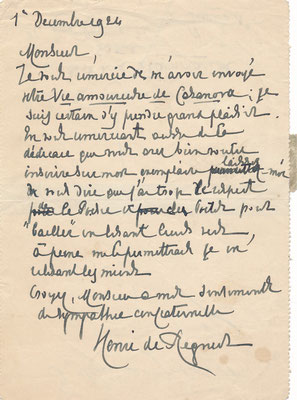 1er Décembre 1924
Monsieur
Je vous remercie de m'avoir envoyé
votre Vie amoureuse de Casanova ; je
suis certain d'y prendre grand plaisir.
En vous remerciant aussi de la
dédicace que vous avez bien voulu
inscrire sur mon exemplaire, laissez moi
de vous dire que j'ai trop le respect
de la Poésie et pour des Poètes pour
"bailler" en lisant leurs vers
à peine me le permettrais-je en
relisant les miens
Croyez, Monsieur à mes sentiments
de sympathie confraternelle
Henri de Régnier